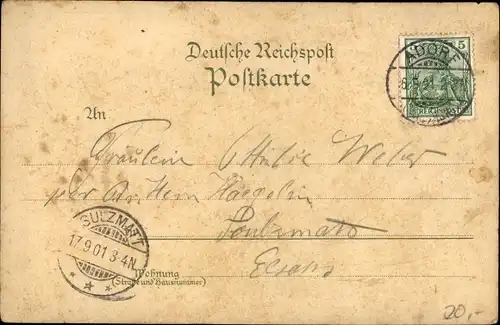 Deutsche Reichspost
Postkarte
ADORF
5
An
Fräulein Ottilie Weber
per Adr. Herrn Haegelin
Soulzmatt
Elsass
SULZMATT
17.9.01 3-4N
Wohnung
(Straße und Hausnummer)
20,-